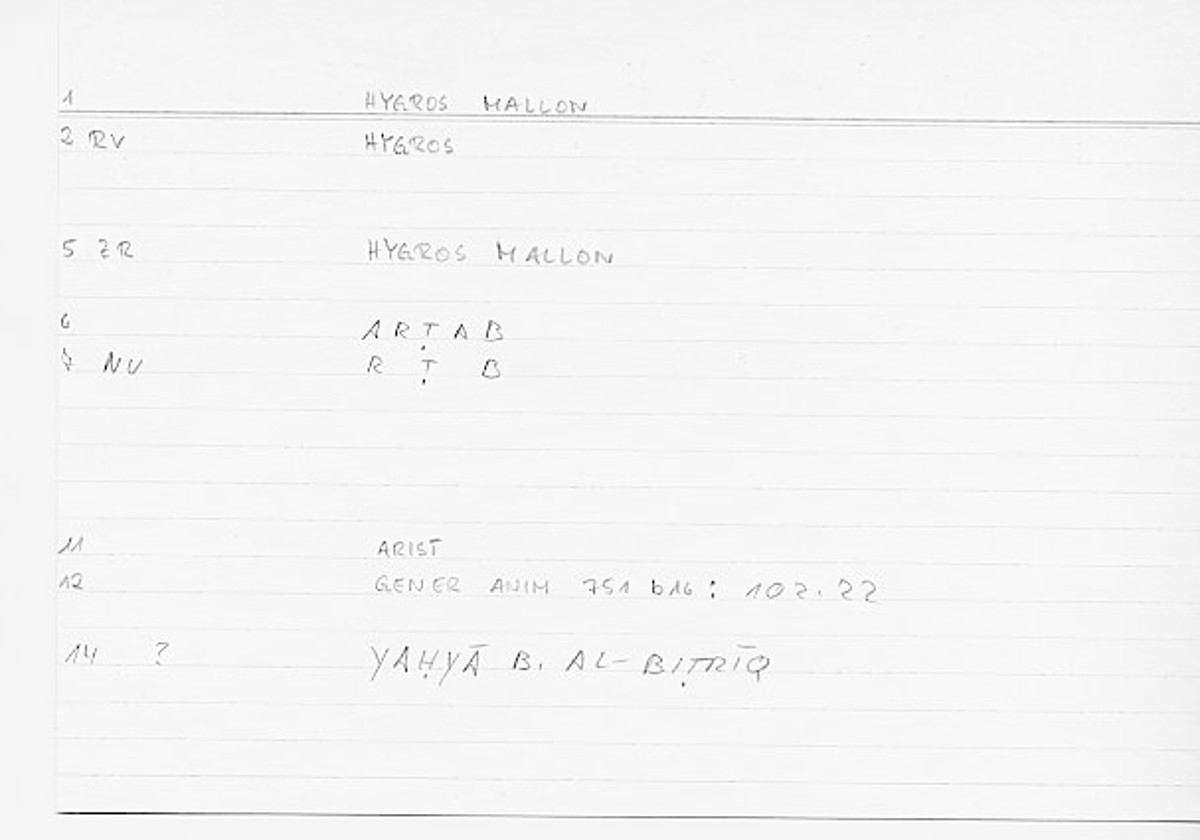 1 HYGROS MALLON
2 RV HYGROS
5 ZR HYGROS MALLON
6 ARṬAB
7 NV R Ṭ B
11 ARIST
12 GENER ANIM 751 b16 : 102.22
14 ? YAḤYĀ B. AL-BIṬRĪQ